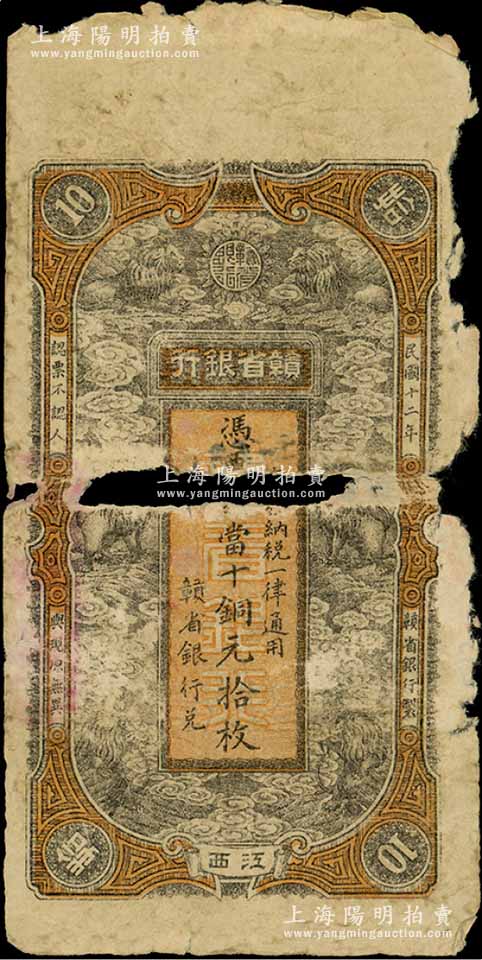 上海陽明拍賣
www.yangmingauction.com
10
贛省銀行
民國十二年
贛省銀行製
憑
當十銅元拾枚
納稅一律通用
贛省銀行兌
認票不認人
與現?無異
上海陽明拍賣
www.yangmingauction.com
10
江西
上海陽明拍賣
www.yangmingauction.com